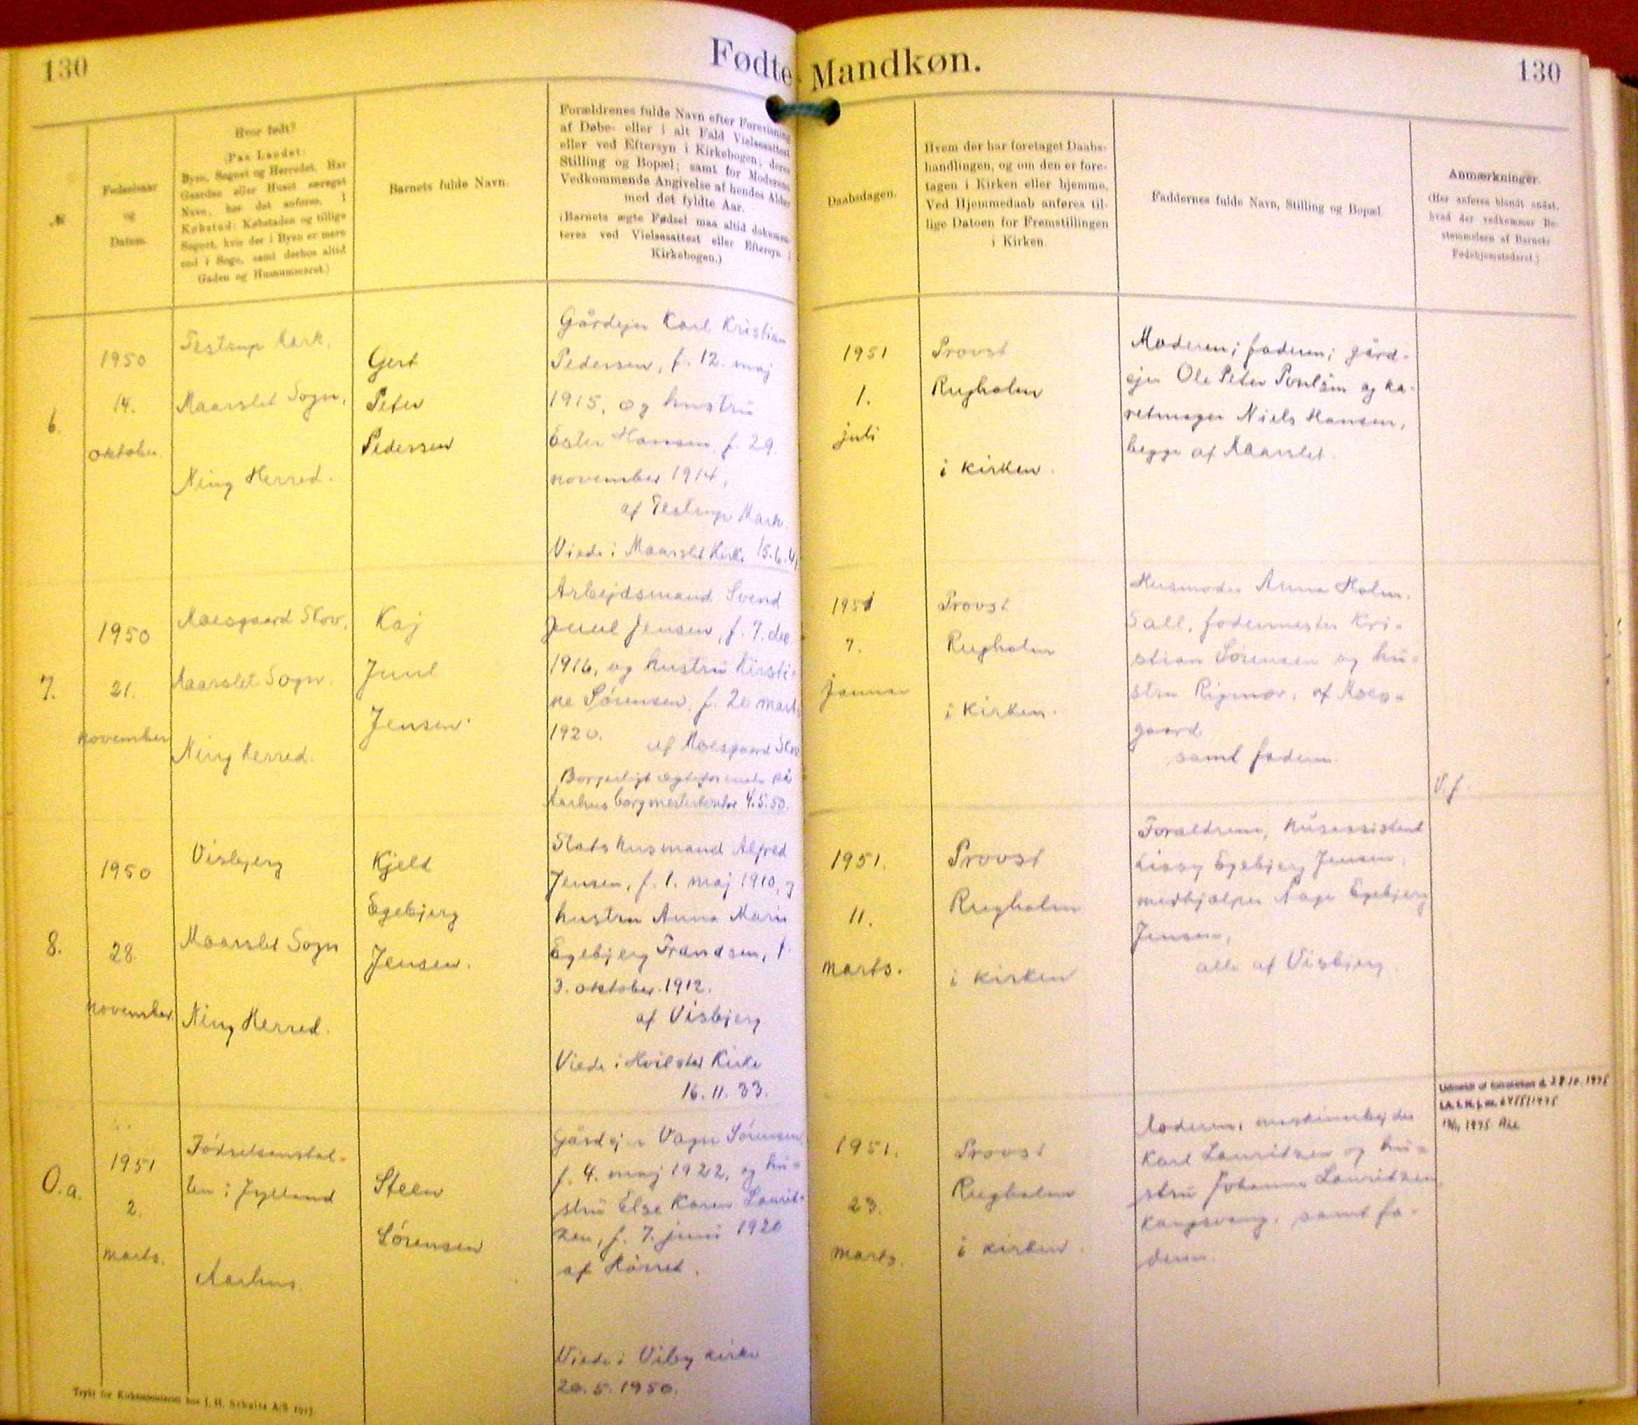 130
Fødte Mandkøn.
130
№
Fødselsaar
og
Datum.
Hvor født?
(Paa Landet:
Byens, Sognets og Herredet. Har
Gaarden eller Huset særegent
Navn, bør det anføres. I
Købstad: Købstaden og tillige
Sognet, hvis der i Byen er mere
end i Sogn, samt derhos altid
Gaden og Husnumeret.)
Barnets fulde Navn.
Forældrenes fulde Navn efter Forevisning
af Døbe- eller i alt Fald Vielsesattest
eller ved Eftersyn i Kirkebogen; deres
Stilling og Bopæl; samt for Moderens
Vedkommende Angivelse af hendes Alder
med det fyldte Aar.
(Barnets ægte Fødsel maa altid dokumen-
teres ved Vielsesattest eller Eftersyn i
Kirkebogen.)
Daabsdagen.
Hvem der har foretaget Daabs-
handlingen, og om den er fore-
tagen i Kirken eller hjemme.
Ved Hjemmedaab anføres til-
lige Datoen for Fremstillingen
i Kirken.
Faddernes fulde Navn, Stilling og Bopæl.
Anmærkninger.
(Her anføres blandt andet,
hvad der vedkommer Be-
stemmelsen af Barnets
Fødehjemstederet.)
6.
1950
14.
oktober
Testrup Mark,
Maarslet Sogn,
Ning Herred.
Gert
Peter
Pedersen
Gårdejer Karl Kristian
Pedersen, f. 12. maj
1915, og hustru
Ester Hansen f. 29.
november 1914,
af Testrup Mark.
Viede i Maarslet Kirke 15.6.
1951
1.
juli
Provst
Rugholm
i kirken.
Moderen; faderen; gård-
ejer Ole Peter Poulsen og ka-
retmager Niels Hansen,
begge af Maarslet.
7.
1950
21.
november
Moesgaard Skov,
Maarslet Sogn.
Ning Herred.
Kaj
Juul
Jensen.
Arbejdsmand Svend
Juul Jensen, f. 7. dec
1916, og hustru Kirsti-
ne Sørensen, f. 20 marts
1920. af Moesgaard Skov
Borgerligt ægteforenede på
Aarhus borgmesterkontor 4.5.50.
1951
7.
januar
Provst
Rugholm
i kirken.
Husmoder Anna Holm.
Sall, fodermester Kri-
stian Sørensen og hu-
stru Rigmor, af Moes-
gaard
samt faderen.
V.f.
8.
1950
28.
november
Visbjerg
Maarslet Sogn
Ning Herred.
Kjeld
Egebjerg
Jensen.
Statshusmand Alfred
Jensen, f. 1. maj 1910, og
hustru Anna Marie
Egebjerg Frandsen, f.
3. oktober 1912.
af Visbjerg
Viede i Hvilsted Kirke
16.11.33.
1951.
11.
marts.
Provst
Rugholm
i kirken
Forældrene, husassistent
Lissy Egebjerg Jensen,
medhjælper Aage Egebjerg
Jensen,
alle af Visbjerg.
O.a.
1951
2.
marts.
Fødselsanstal-
ten i Jylland
Aarhus.
Steen
Sørensen
Gårdejer Vagn Sørensen
f. 4. maj 1922, og hu-
stru Else Karen Laurit-
zen, f. 7. juni 1920
af Hørret.
Viede i Viby kirke
20.5.1950.
1951.
23.
marts.
Provst
Rugholm
i kirken.
Moderen, maskinarbejder
Karl Lauritzen og hu-
stru Johanne Lauritzen,
Kongsvang, samt fa-
deren.
28.10.1975
1975
Trykt for Kirkeministeriet hos J. H. Schultz A/S